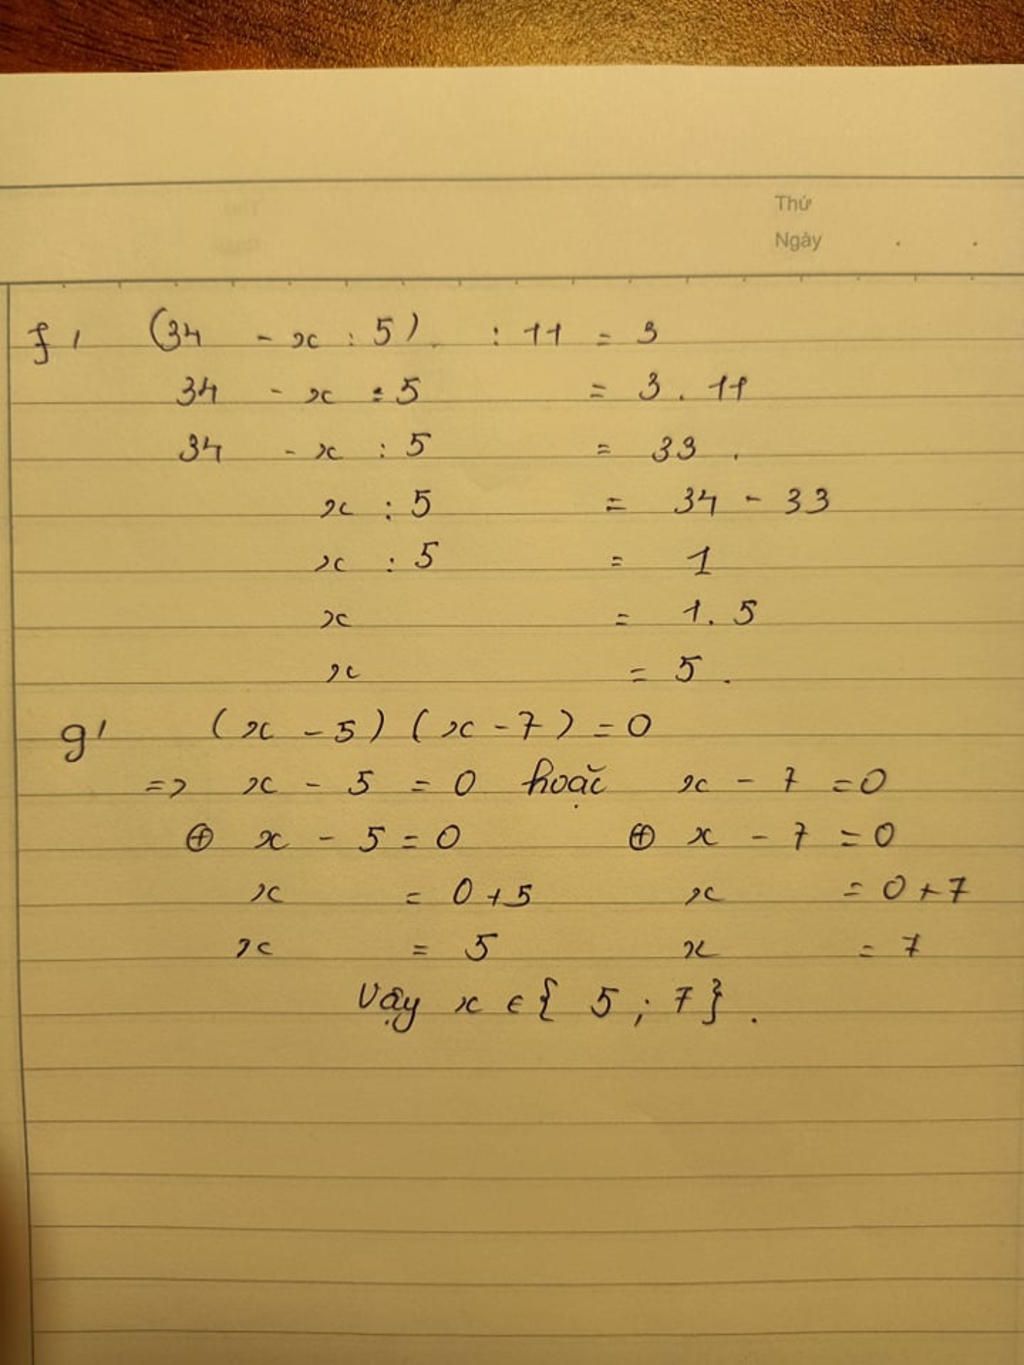 Thứ
Ngày . .
f, (34 - x : 5) : 11 = 3
34 - x : 5 = 3 . 11
34 - x : 5 = 33 .
x : 5 = 34 - 33
x : 5 = 1
x = 1 . 5
x = 5 .
g, (x - 5) (x - 7) = 0
=> x - 5 = 0 hoặc x - 7 = 0
⊕ x - 5 = 0 ⊕ x - 7 = 0
x = 0 + 5 x = 0 + 7
x = 5 x = 7
Vậy x ∈ { 5 ; 7 } .